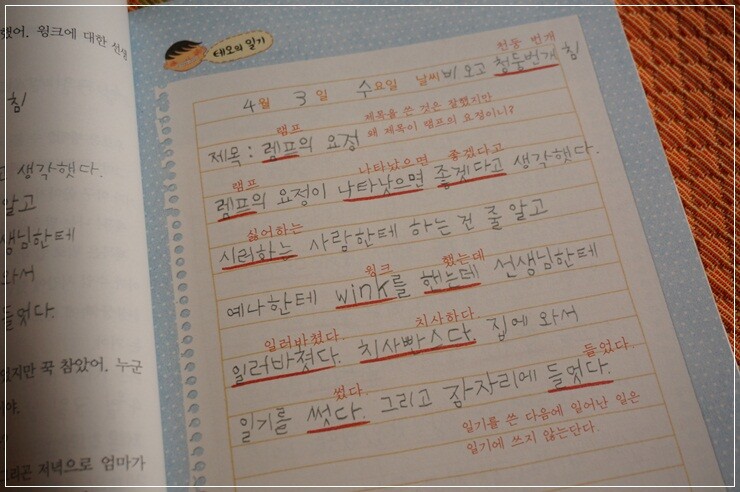 했어. 윙크에 대한 선생
침
고 생각햇다.
알고
생님한테
와서
들엇다.
있지만 꾹 참았어. 누군
이야.
그리곤 저녁으로 엄마가
테오의 일기
천둥 번개
4월 3일 수요일 날씨 비 오고 청둥번개 침
램프
제목을 쓴 것은 잘했지만
왜 제목이 램프의 요정이니?
제목: 렘프의 요정
램프 나타났으면 좋겠다고
렘프의 요정이 나타낫으면 좋겟다고 생각햇다.
싫어하는
시러하는 사람한테 하는 건 줄 알고
윙크 했는데
예나한테 wink를 햇는테 선생님한테
일러바쳤다. 치사하다.
일러바쳣다. 치사빤스다. 집에 와서
썼다. 들었다.
일기를 썻다. 그리고 잠자리에 들엇다.
일기를 쓴 다음에 일어난 일은
일기에 쓰지 않는단다.